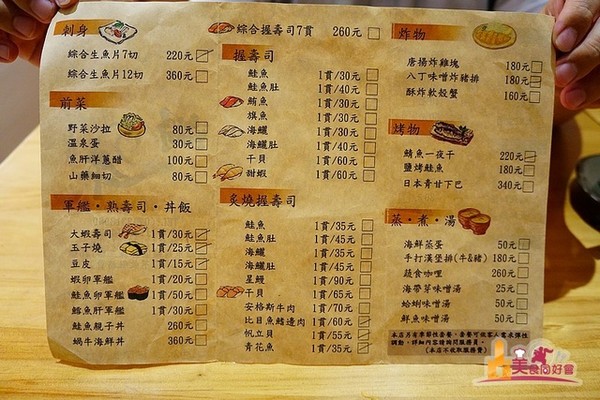 刺身
綜合生魚片7切 220元
綜合生魚片12切 360元
前菜
野菜沙拉 80元
溫泉蛋 30元
魚肝洋蔥醋 100元
山藥細切 80元
軍艦·熟壽司·丼飯
大蝦壽司 1貫/30元
玉子燒 1貫/25元
豆皮 1貫/15元
蝦卵軍艦 1貫/20元
鮭魚卵軍艦 1貫/50元
鱈魚肝軍艦 1貫/40元
鮭魚親子丼 260元
蝸牛海鮮丼 360元
綜合握壽司7貫 260元
握壽司
鮭魚 1貫/30元
鮭魚肚 1貫/40元
鮪魚 1貫/30元
旗魚 1貫/30元
海鱺 1貫/30元
海鱺肚 1貫/40元
干貝 1貫/60元
甜蝦 1貫/60元
炙燒握壽司
鮭魚 1貫/35元
鮭魚肚 1貫/45元
海鱺 1貫/35元
海鱺肚 1貫/45元
星鰻 1貫/90元
干貝 1貫/65元
安格斯牛肉 1貫/70元
比目魚鰭邊肉 1貫/60元
帆立貝 1貫/55元
青花魚 1貫/35元
炸物
唐揚炸雞塊 180元
八丁味噌炸豬排 180元
酥炸軟殼蟹 160元
烤物
鯖魚一夜干 220元
鹽烤鮭魚 220元
日本青甘下巴 340元
蒸·煮·湯
海鮮蒸蛋 50元
手打漢堡排(牛&豬) 180元
蔬食咖哩 260元
海帶芽味噌湯 25元
蛤蜊味噌湯 50元
鮮魚味噌湯 50元
本店另有季節性套餐,套餐可依客人需求彈性
調動,詳細內容請詢問服務員。
(本店不收取服務費)
美食同好會